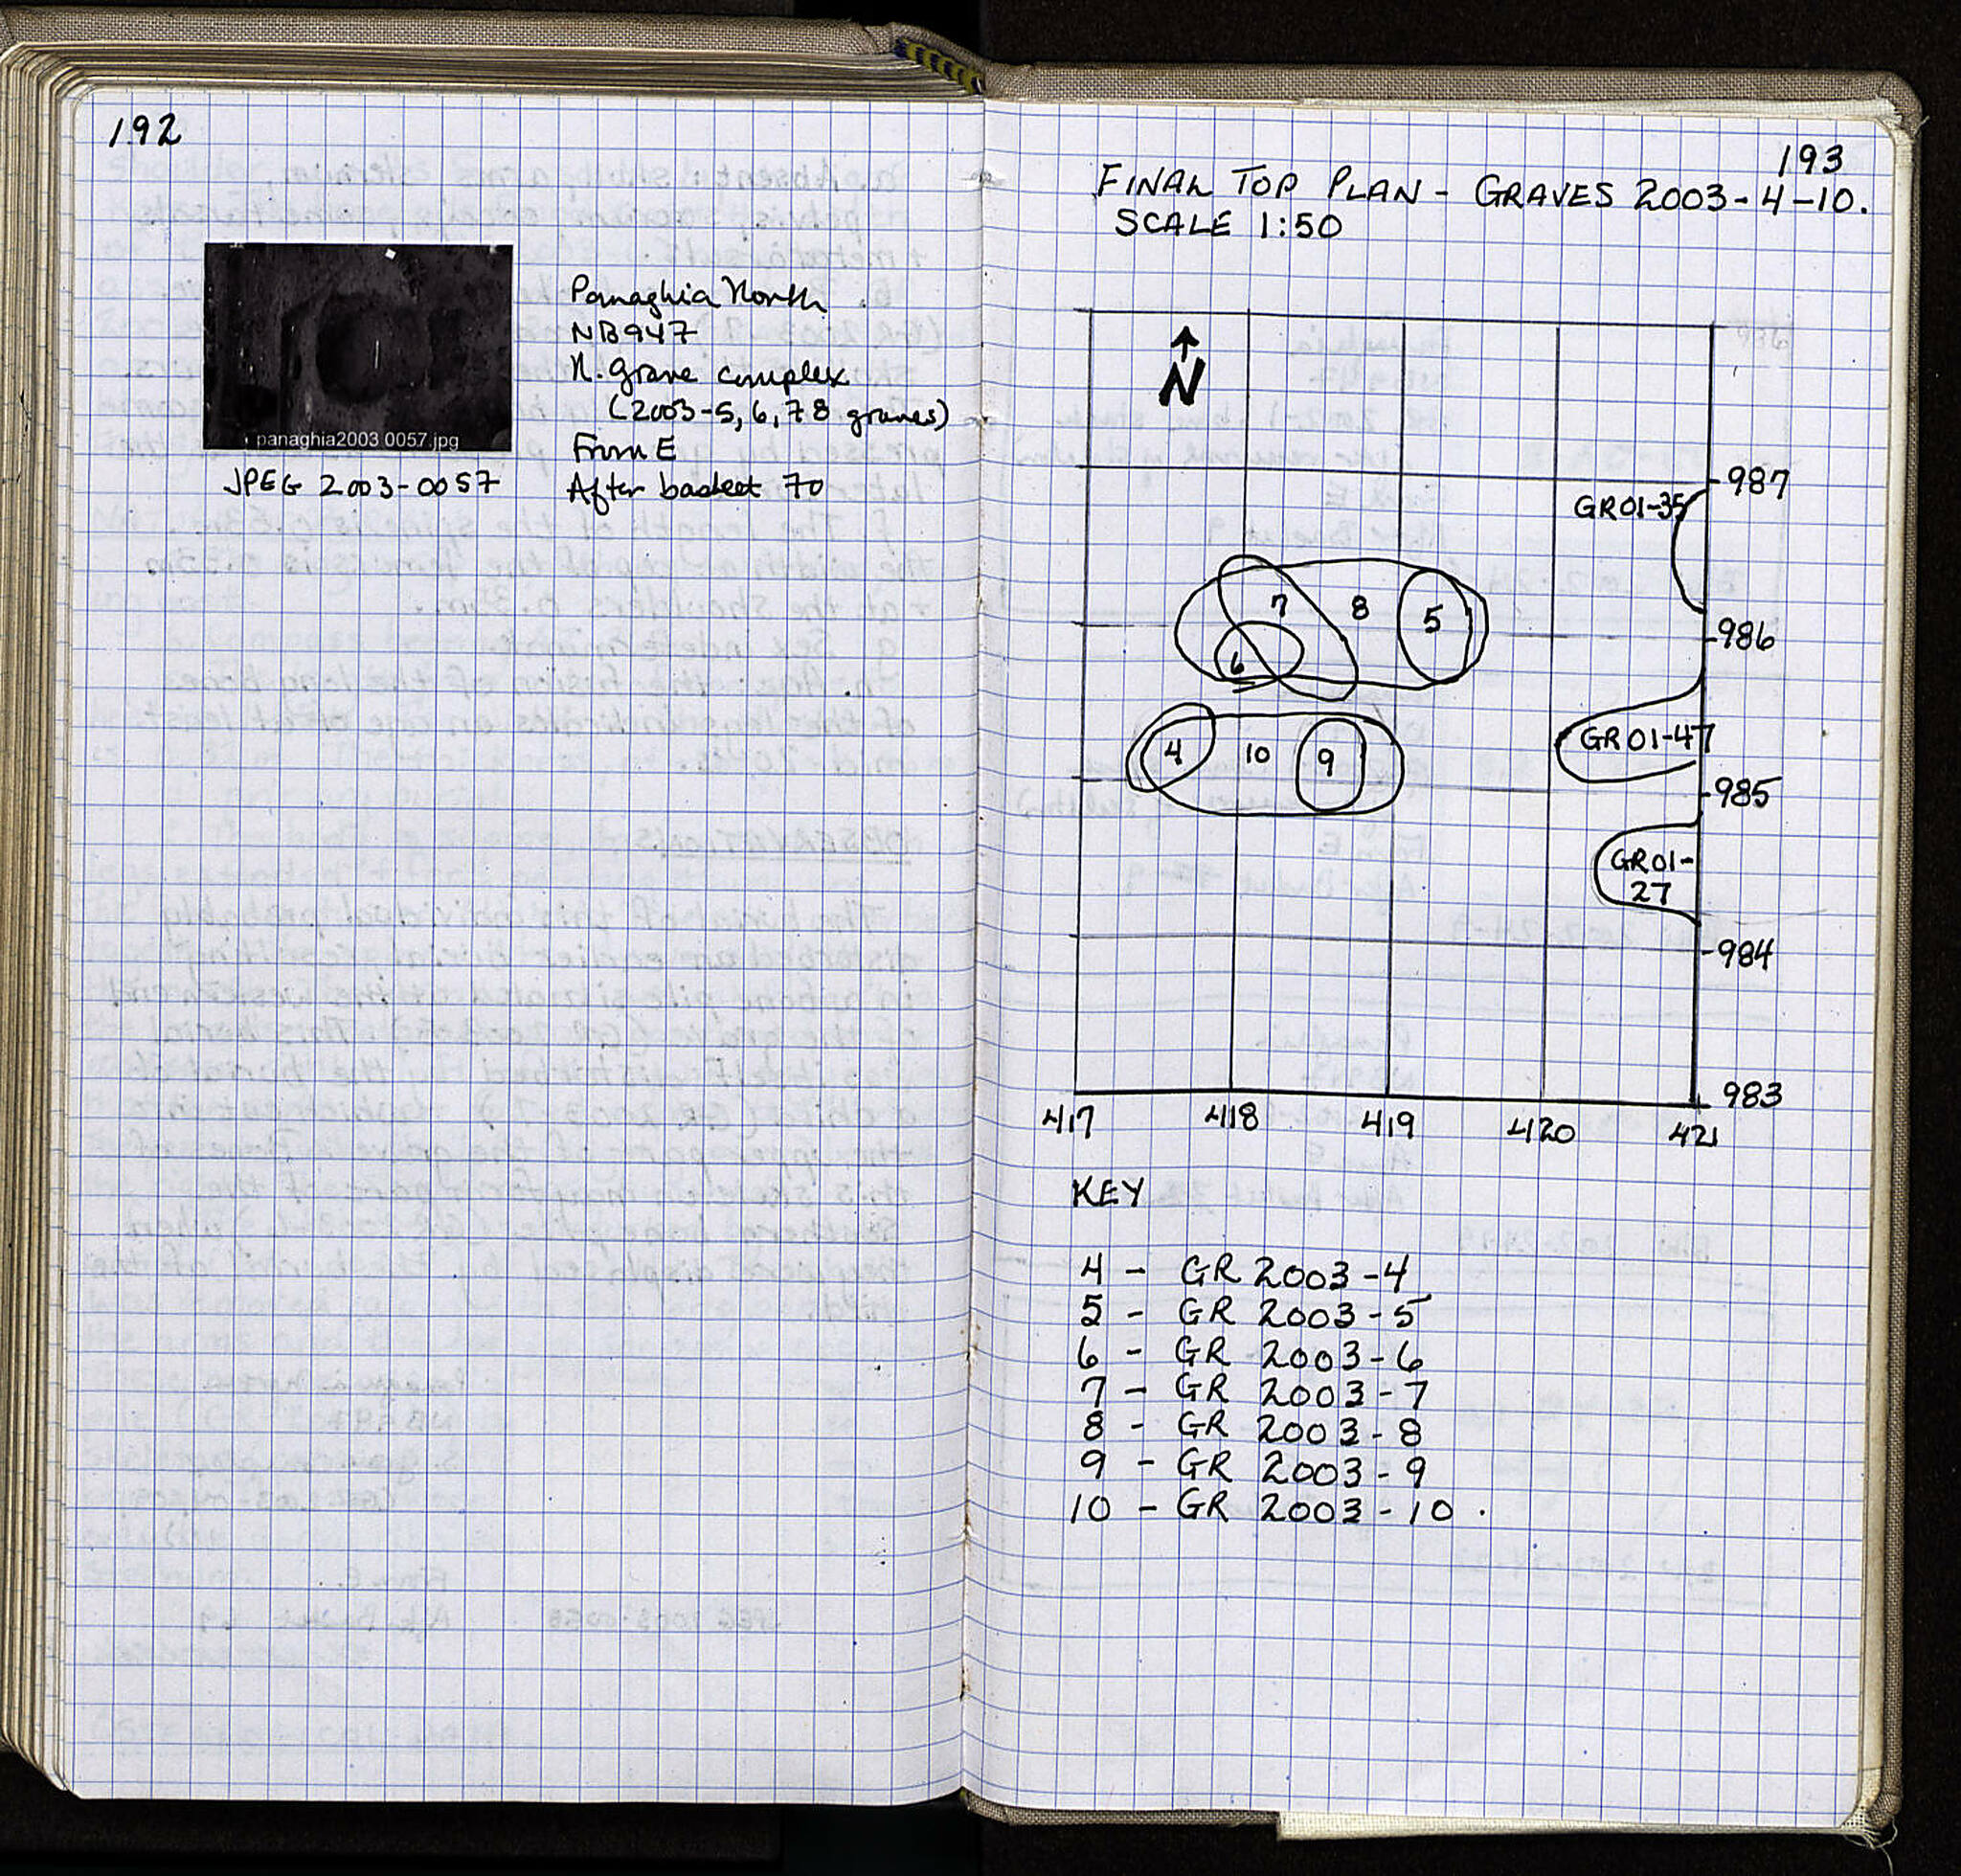 192
panaghia2003 0057.jpg
JPEG 2003-0057
Panaghia North
NB947
N. Grave complex
(2003-5, 6, 7 8 graves)
From E
After basket 70
193
FINAL TOP PLAN - GRAVES 2003-4-10.
SCALE 1:50
N
987
GR01-35
7
8
5
986
6
GR01-47
4
10
9
985
GR01-
27
984
983
417
418
419
420
421
KEY
4 - GR 2003-4
5 - GR 2003-5
6 - GR 2003-6
7 - GR 2003-7
8 - GR 2003-8
9 - GR 2003-9
10 - GR 2003-10.